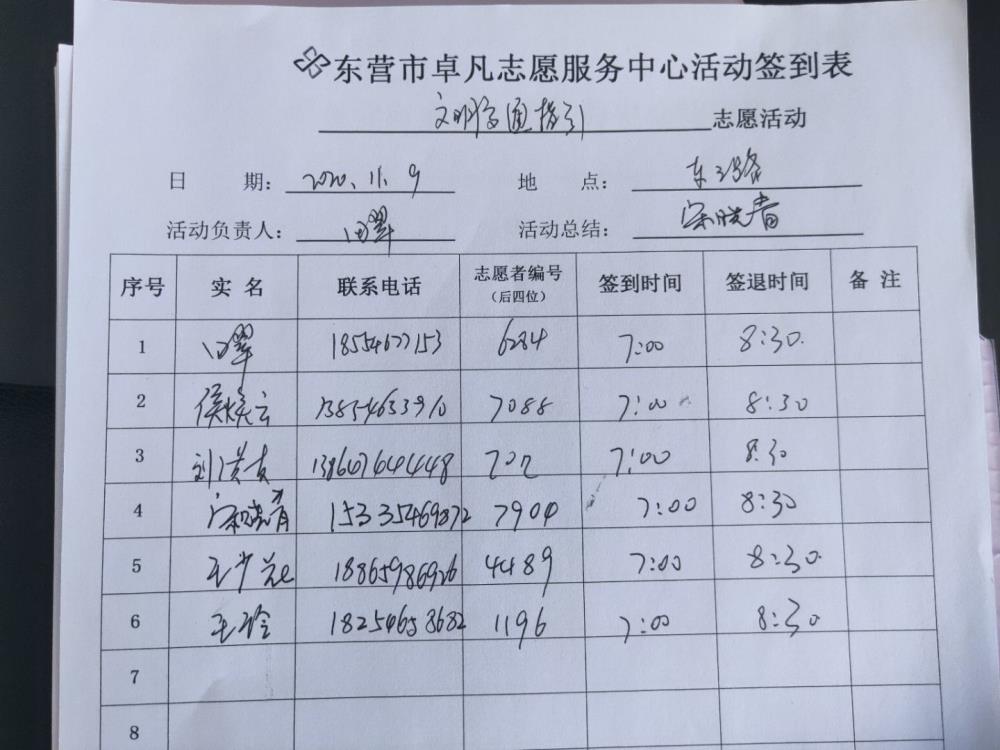 东营市卓凡志愿服务中心活动签到表
文明交通指引 志愿活动
日 期: 2020.11.9 地 点: 东三路
活动负责人: 田翠 活动总结: 宋晓青
序号 实名 联系电话 志愿者编号 (后四位) 签到时间 签退时间 备注
1 田翠 18554677153 6284 7:00 8:30
2 侯焕云 13854653910 7088 7:00 8:30
3 刘洪友 13864764448 7:00 8:30
4 宋晓青 15335469872 7904 7:00 8:30
5 王少 18865986926 4489 7:00 8:30
6 王玲 18254658682 1196 7:00 8:30
7
8